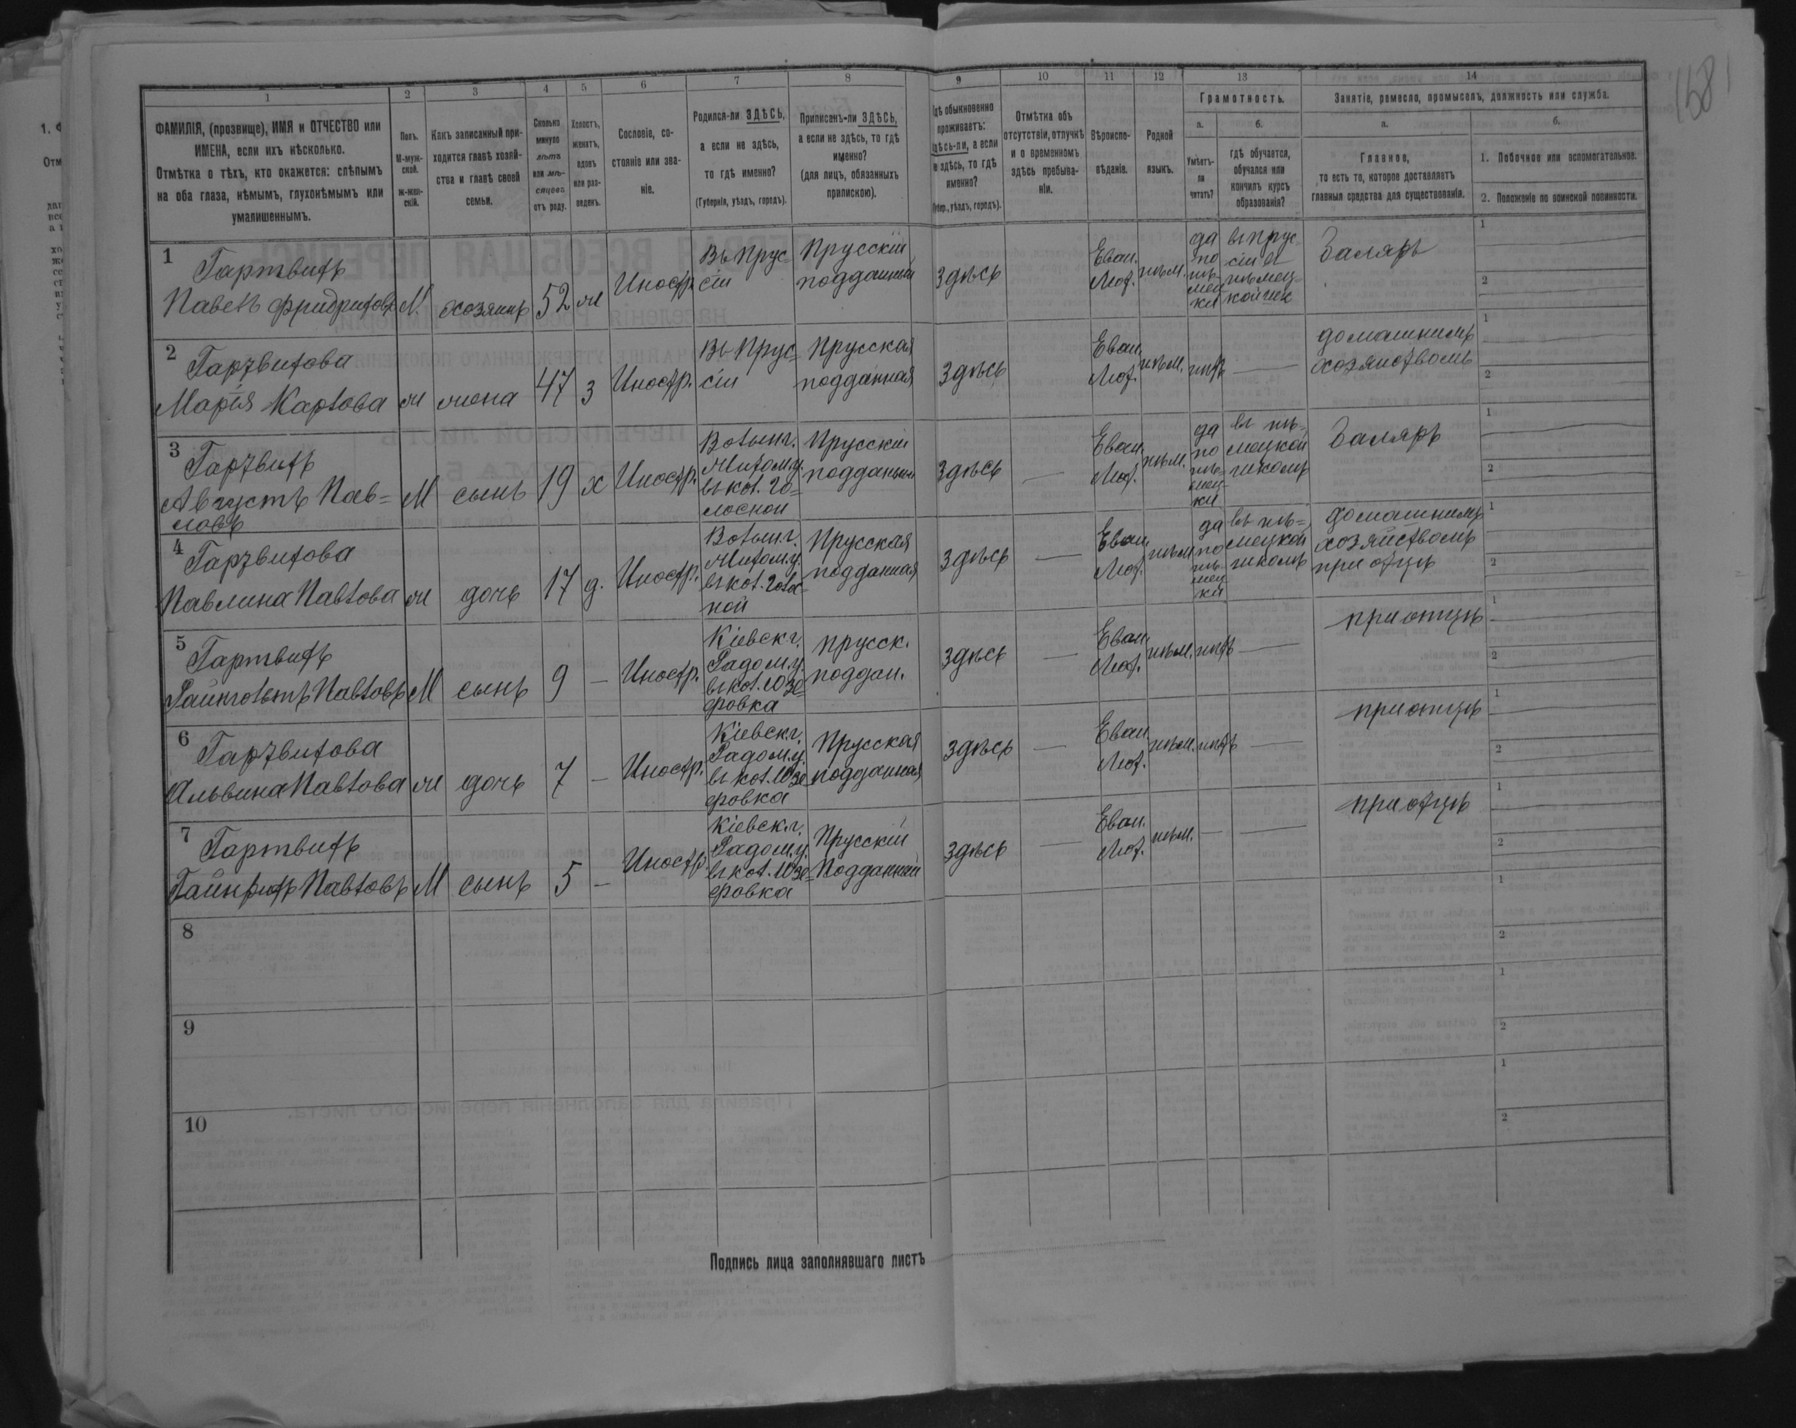 1681
1 2 3 4 5 6 7 8 9 10 11 12 13 14
ФАМИЛІЯ, (прозвище), ИМЯ и ОТЧЕСТВО или
ИМЕНА, если ихъ нѣсколько.
Отмѣтка о тѣхъ, кто окажется: слѣпымъ
на оба глаза, нѣмымъ, глухонѣмымъ или
умалишеннымъ.
Полъ.
М-муж-
ской.
ж-жен-
скій.
Какъ записанный при-
ходится главѣ хозяй-
ства и главѣ своей
семьи.
Сколько
минуло
лѣтъ
или мѣ-
сяцевъ
отъ роду.
Холостъ,
женатъ,
вдовъ
или раз-
веденъ.
Сословіе, со-
стояніе или зва-
ніе.
Родился-ли ЗДѢСЬ,
а если не здѣсь,
то гдѣ именно?
(Губернія, уѣздъ, городъ).
Приписанъ-ли ЗДѢСЬ,
а если не здѣсь, то гдѣ
именно?
(для лицъ, обязанныхъ
припискою).
Гдѣ обыкновенно
проживаетъ:
здѣсь-ли, а если
не здѣсь, то гдѣ
именно?
(Губер., уѣздъ, городъ).
Отмѣтка объ
отсутствіи, отлучкѣ
и о временномъ
здѣсь пребыва-
ніи.
Вѣроиспо-
вѣданіе.
Родной
языкъ.
Грамотность.
а.
Умѣетъ-
ли
читать?
б.
гдѣ обучается,
обучался или
кончилъ курсъ
образованія?
Занятіе, ремесло, промыселъ, должность или служба.
а.
Главное,
то есть то, которое доставляетъ
главныя средства для существованія.
б.
1. Побочное или вспомогательное.
2. Положеніе по воинской повинности.
1
Гартвихъ
Павелъ Фридриховъ
М.
хозяинъ
52
ж
Иностр.
Въ Прус
сіи
Прусскій
подданный
здѣсь
Еван.
Лют.
нѣм.
да
по
нѣ-
мец
ки
въ Прус
сіи
нѣмец-
кой шк
Заляръ
1
2
2
Гартвихова
Марія Карлова
ж
жена
47
з
Иностр.
Въ Прус
сіи
Прусская
подданная
здѣсь
Еван.
Лют.
нѣм.
нѣтъ
домашнимъ
хозяйствомъ
1
2
3
Гартвихъ
Августъ Пав-
ловъ
М
сынъ
19
х
Иностр.
Волынг.
Житом.у.
въ кол. Го-
лосной
Прусскій
подданный
здѣсь
Еван.
Лют.
нѣм.
да
по
нѣ-
мец-
ки
въ нѣ-
мецкой
школѣ
Заляръ
1
2
4
Гартвихова
Павлина Павлова
ж
дочь
17
д.
Иностр.
Волынг.
Житом.у.
въ кол. Голос
ной
Прусская
подданная
здѣсь
Еван.
Лют.
нѣм.
да
по
нѣ-
мец
ки
въ нѣ-
мецкой
школѣ
домашнимъ
хозяйствомъ
при отцѣ
1
2
5
Гартвихъ
Райнгольтъ Павловъ
М
сынъ
9
Иностр.
Кіевск.г.
Радом.у.
въ кол. Юзе-
фовка
прусск.
поддан.
здѣсь
Еван.
Лют.
нѣм.
нѣтъ
при отцѣ
1
2
6
Гартвихова
Альвина Павлова
ж
дочь
7
Иностр.
Кіевск.г.
Радом.у.
въ кол. Юзе-
фовка
Прусская
подданная
здѣсь
Еван.
Лют.
нѣм.
нѣтъ
при отцѣ
1
2
7
Гартвихъ
Гайнрихъ Павловъ
М
сынъ
5
Иностр
Кіевск.г.
Радом.у.
въ кол. Юзе-
фовка
Прусскій
Подданный
здѣсь
Еван.
Лют.
нѣм.
при отцѣ
1
2
8
1
2
9
1
2
10
1
2
Подпись лица заполнявшаго листъ